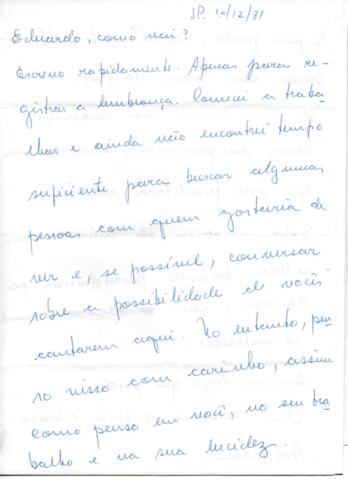 SP. 10/12/81
Eduardo, como vai?
Escrevo rapidamente. Apenas para re-
gistrar a lembrança. Comecei a traba-
lhar e ainda não encontrei tempo
suficiente para buscar algumas
pessoas com quem gostaria de
ver e, se possível, conversar
sobre a possibilidade de vocês
cantarem aqui. No entanto, pen-
so nisso com carinho, assim
como penso em você, no seu tra-
balho e na sua lucidez.